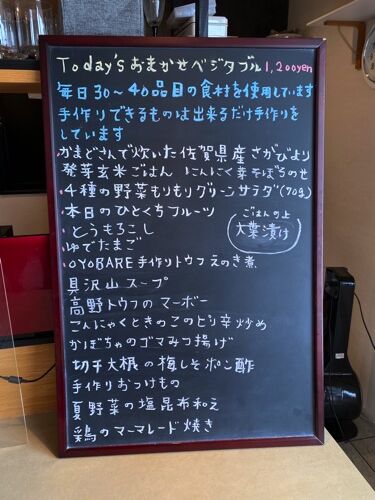 Today'sおまかせベジタブル1,200yen
毎日30～40品目の食材を使用しています
手作りできるものは出来るだけ手作りを
しています
・かまどさんで炊いた佐賀県産さがびより
発芽玄米ごはん にんにく幸そぼろのせ
・4種の野菜もりもりグリーンサラダ(70g)
・本日のひとくちフルーツ
ごはんの上
大葉漬け
・とうもろこし
・ゆでたまご
・OYOBARE手作りトウフえのき煮
具沢山スープ
高野トウフのマーボー
こんにゃくときのこのピリ辛炒め
かぼちゃのゴマみつ揚げ
切干大根の梅しそポン酢
手作りおつけもの
夏野菜の塩昆布和え
鶏のマーマレード焼き